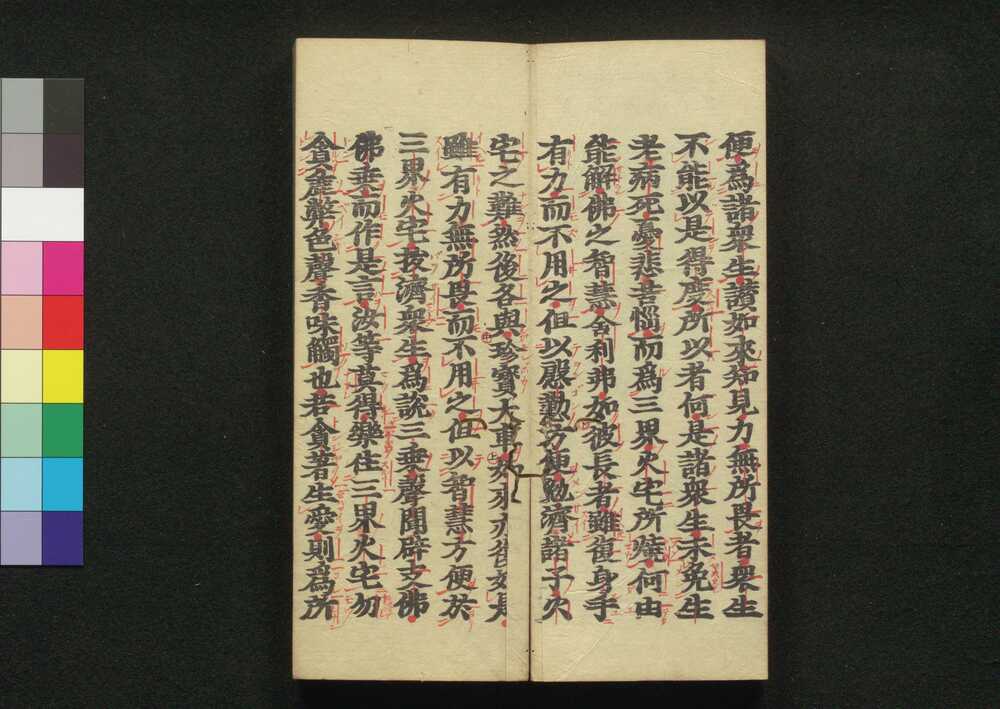 便為諸衆生讃如來知見力無所畏者衆生
不能以是得度所以者何是諸衆生未免生
老病死憂悲苦惱而為三界火宅所燒何由
能解佛之智慧舍利弗如彼長者雖復身手
有力而不用之但以慇懃方便勉濟諸子火
宅之難然後各與珍寶大車如來亦復如是
雖有力無所畏而不用之但以智慧方便於
三界火宅拔濟衆生為說三乗聲聞辟支佛
佛乗而作是言汝等莫得樂住三界火宅勿
貪麁弊色聲香味觸也若貪著生愛則為所